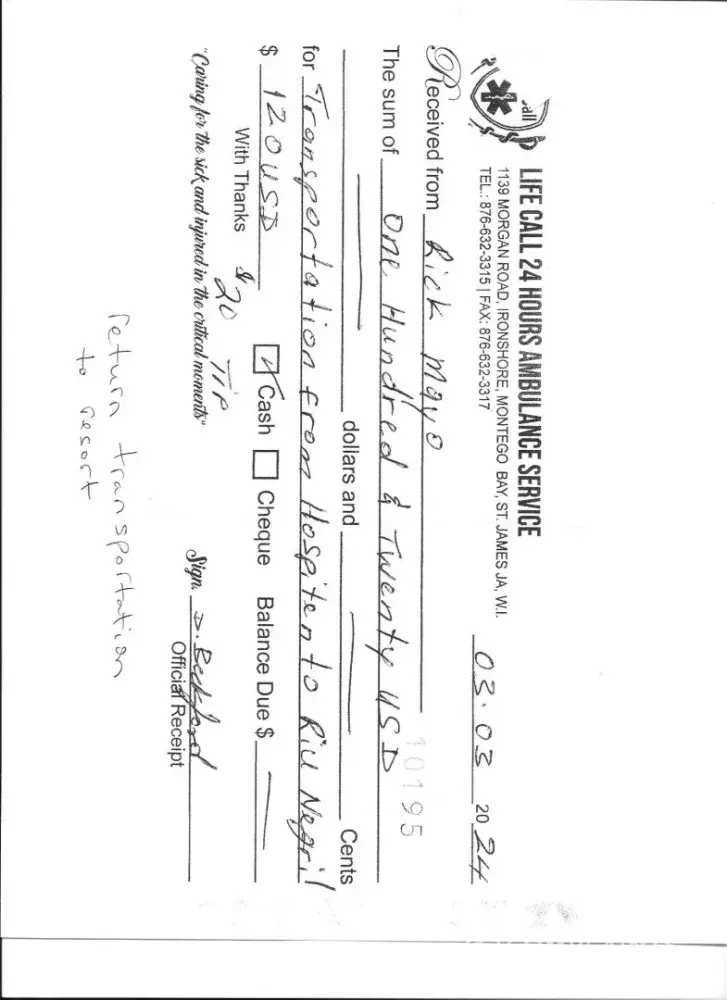 all
LIFE CALL 24 HOURS AMBULANCE SERVICE
1139 MORGAN ROAD, IRONSHORE, MONTEGO BAY, ST. JAMES JA, W.I.
TEL.: 876-632-3315 | FAX: 876-632-3317
03.03 2024
10195
Received from Rick Mayo
The sum of One Hundred & Twenty USD
dollars and Cents
for Transportation from Hospiten to Riu Negril
$ 120 USD Cash Cheque Balance Due $
With Thanks $20 TIP
Sign. D. Beckford
Official Receipt
"Caring for the sick and injured in the critical moments"
return transportation
to resort